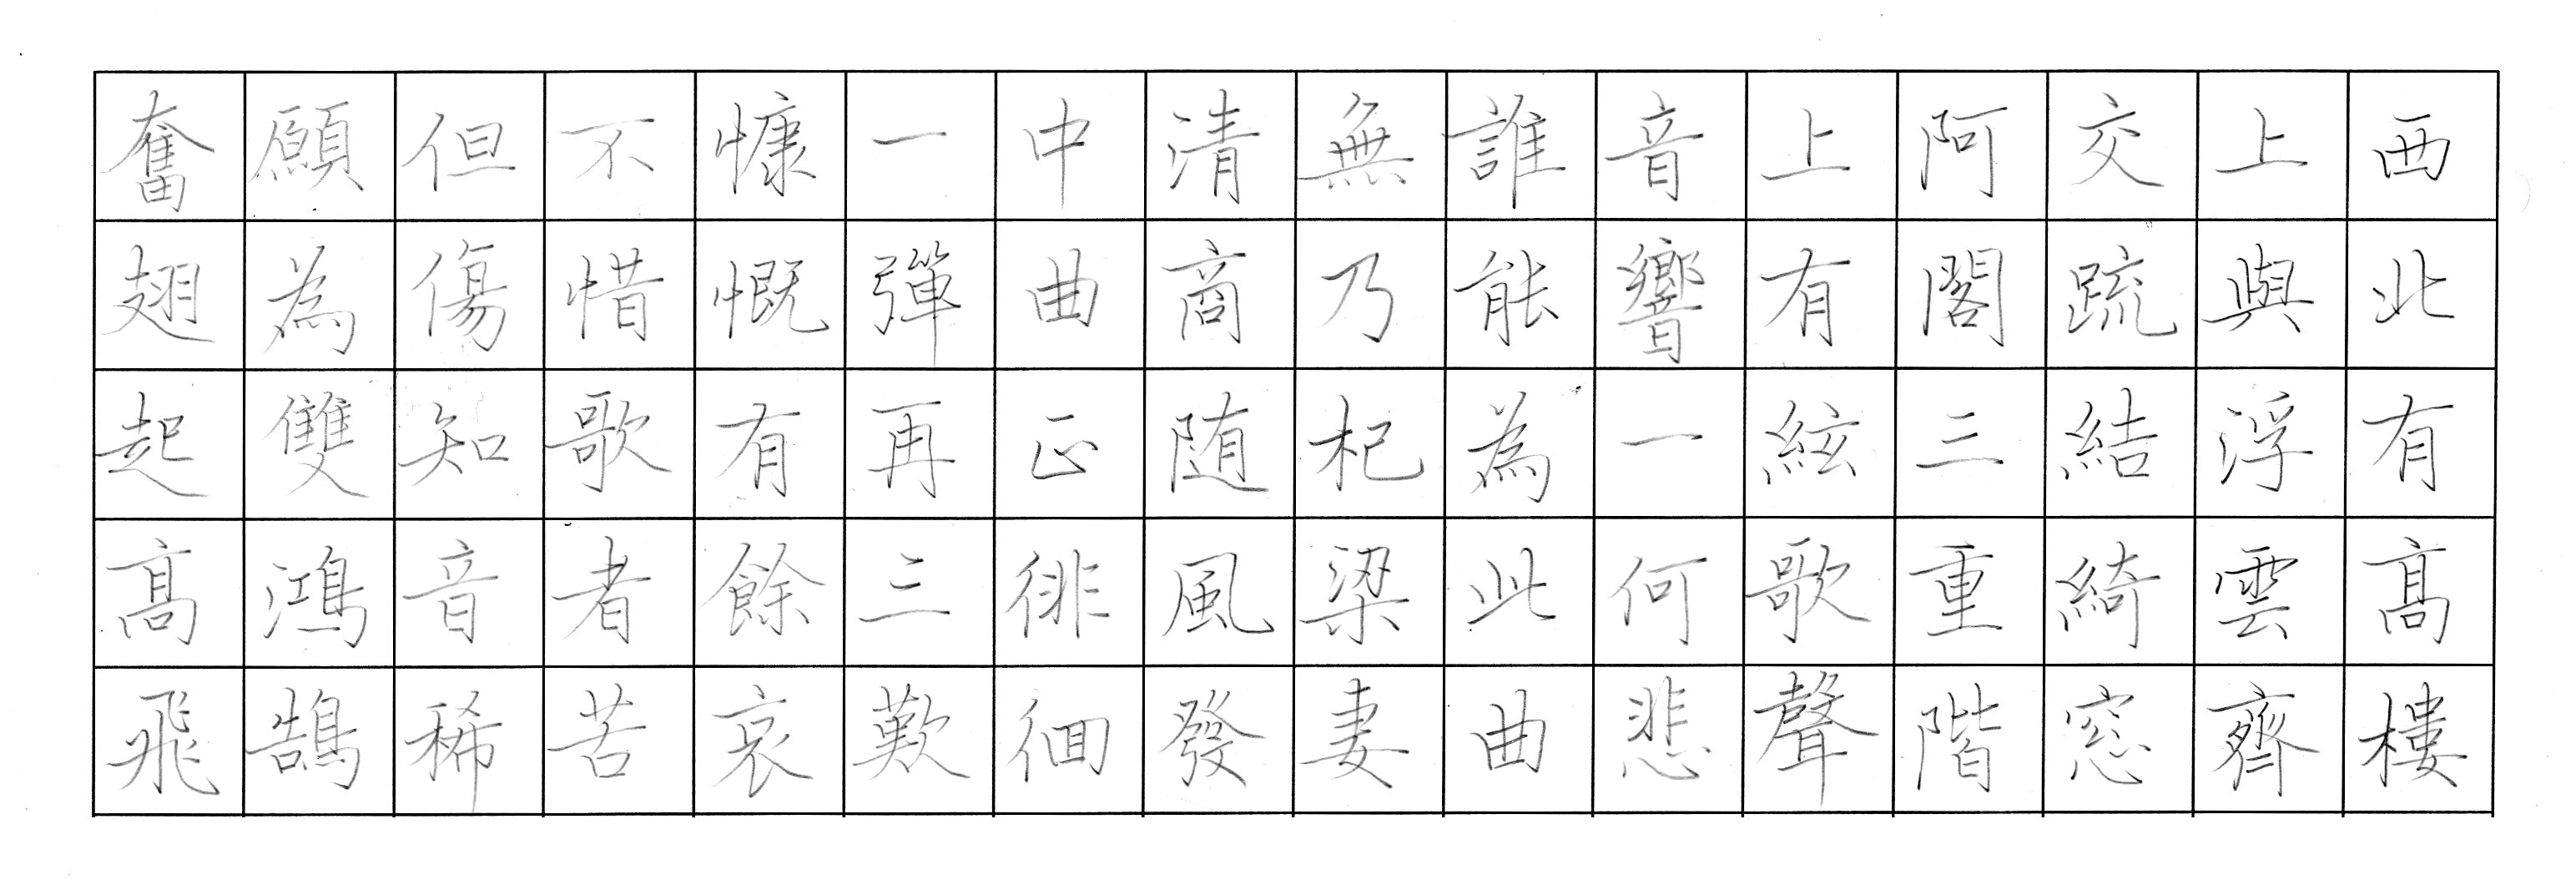 西北有高樓
上與浮雲齊
交疏結綺窓
阿閣三重階
上有絃歌聲
音響一何悲
誰能為此曲
無乃杞梁妻
清商随風發
中曲正徘徊
一彈再三歎
慷慨有餘哀
不惜歌者苦
但傷知音稀
願為雙鴻鵠
奮翅起高飛